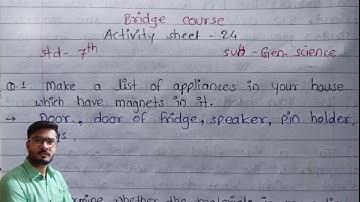 Bridge course
Activity sheet - 24
std - 7th sub - Gen. science
Q.1. Make a list of appliances in your house
which have magnets in it.
→ Door, door of fridge, speaker, pin holder,
whether the materials